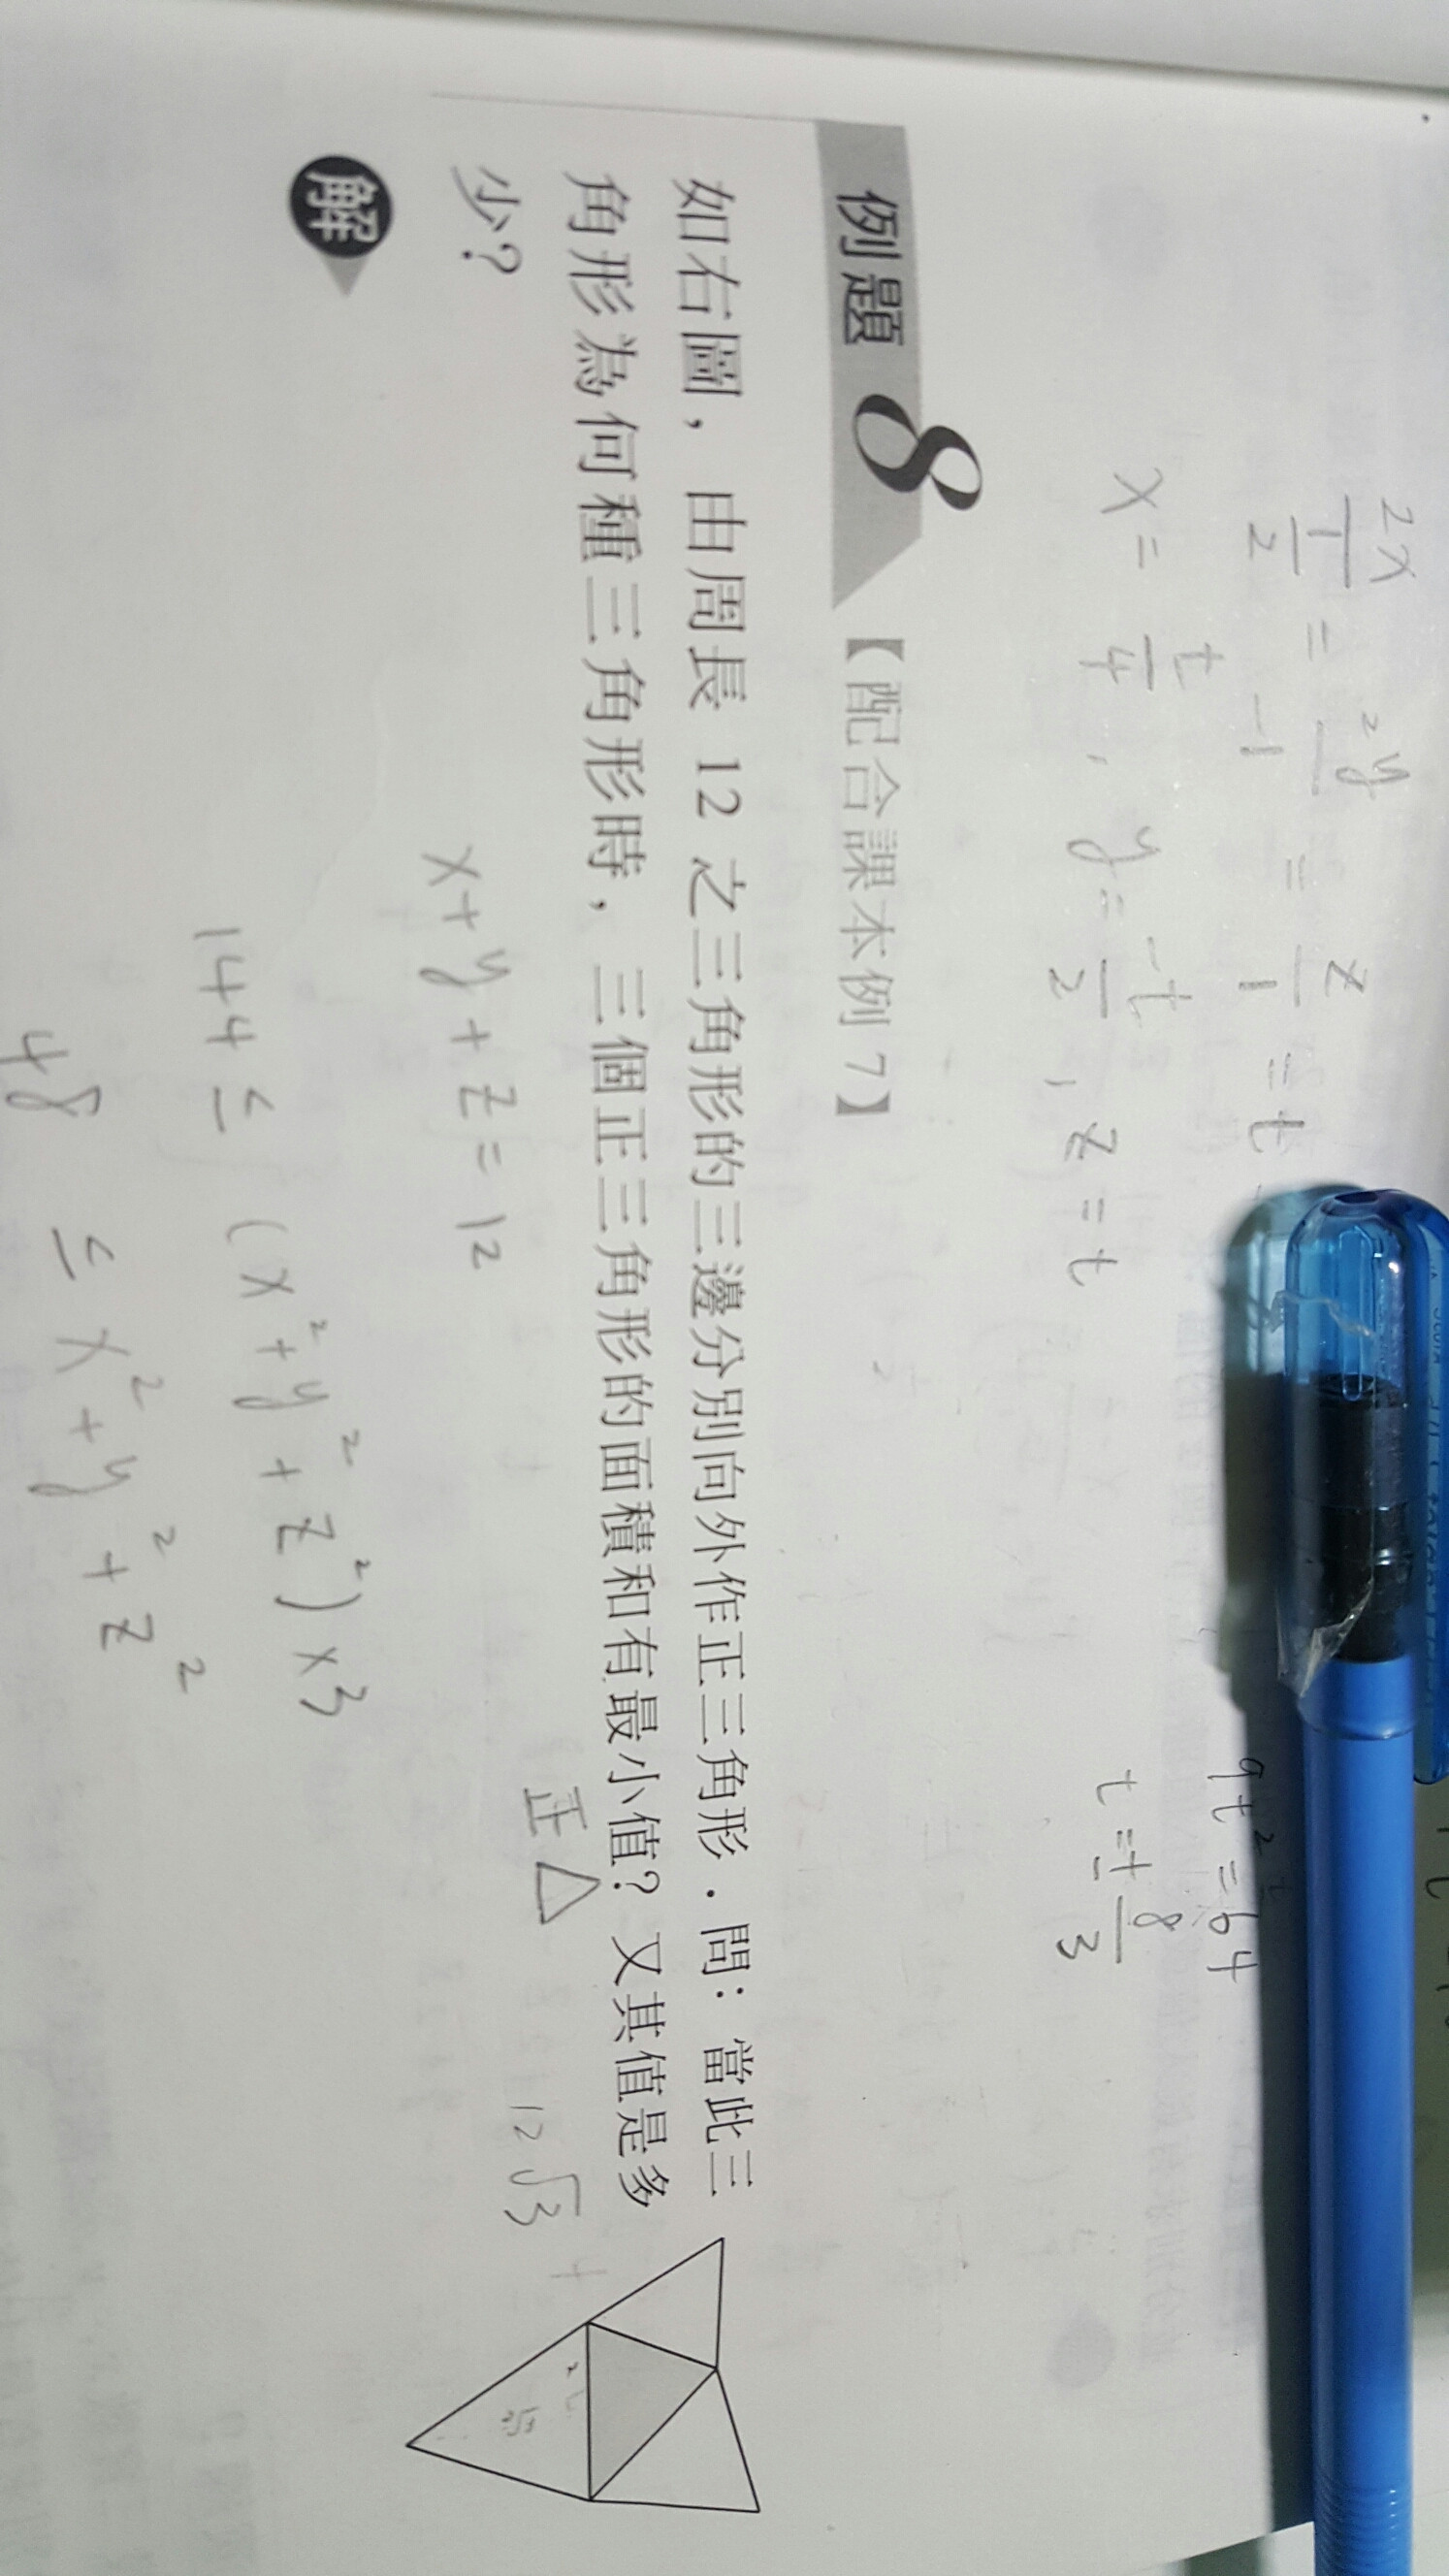 2x/(1/2) = 2y/-1 = z/1 = t
x = t/4 , y = -t/2 , z = t
9t² = 64
t = ± 8/3
例題 8 【配合課本例 7】
如右圖，由周長 12 之三角形的三邊分別向外作正三角形．問：當此三
角形為何種三角形時，三個正三角形的面積和有最小值？又其值是多
少？
正△
12√3
解
x + y + z = 12
144 ≤ (x² + y² + z²) x 3
48 ≤ x² + y² + z²